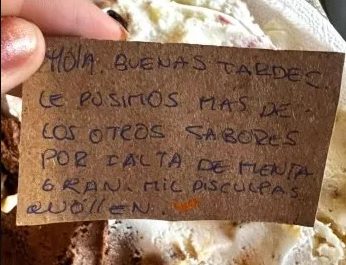 HOLA. BUENAS TARDES.
LE PUSIMOS MAS DE
LOS OTROS SABORES
POR FALTA DE MENTA
GRAN. MIL DISCULPAS
QUOIIEN.